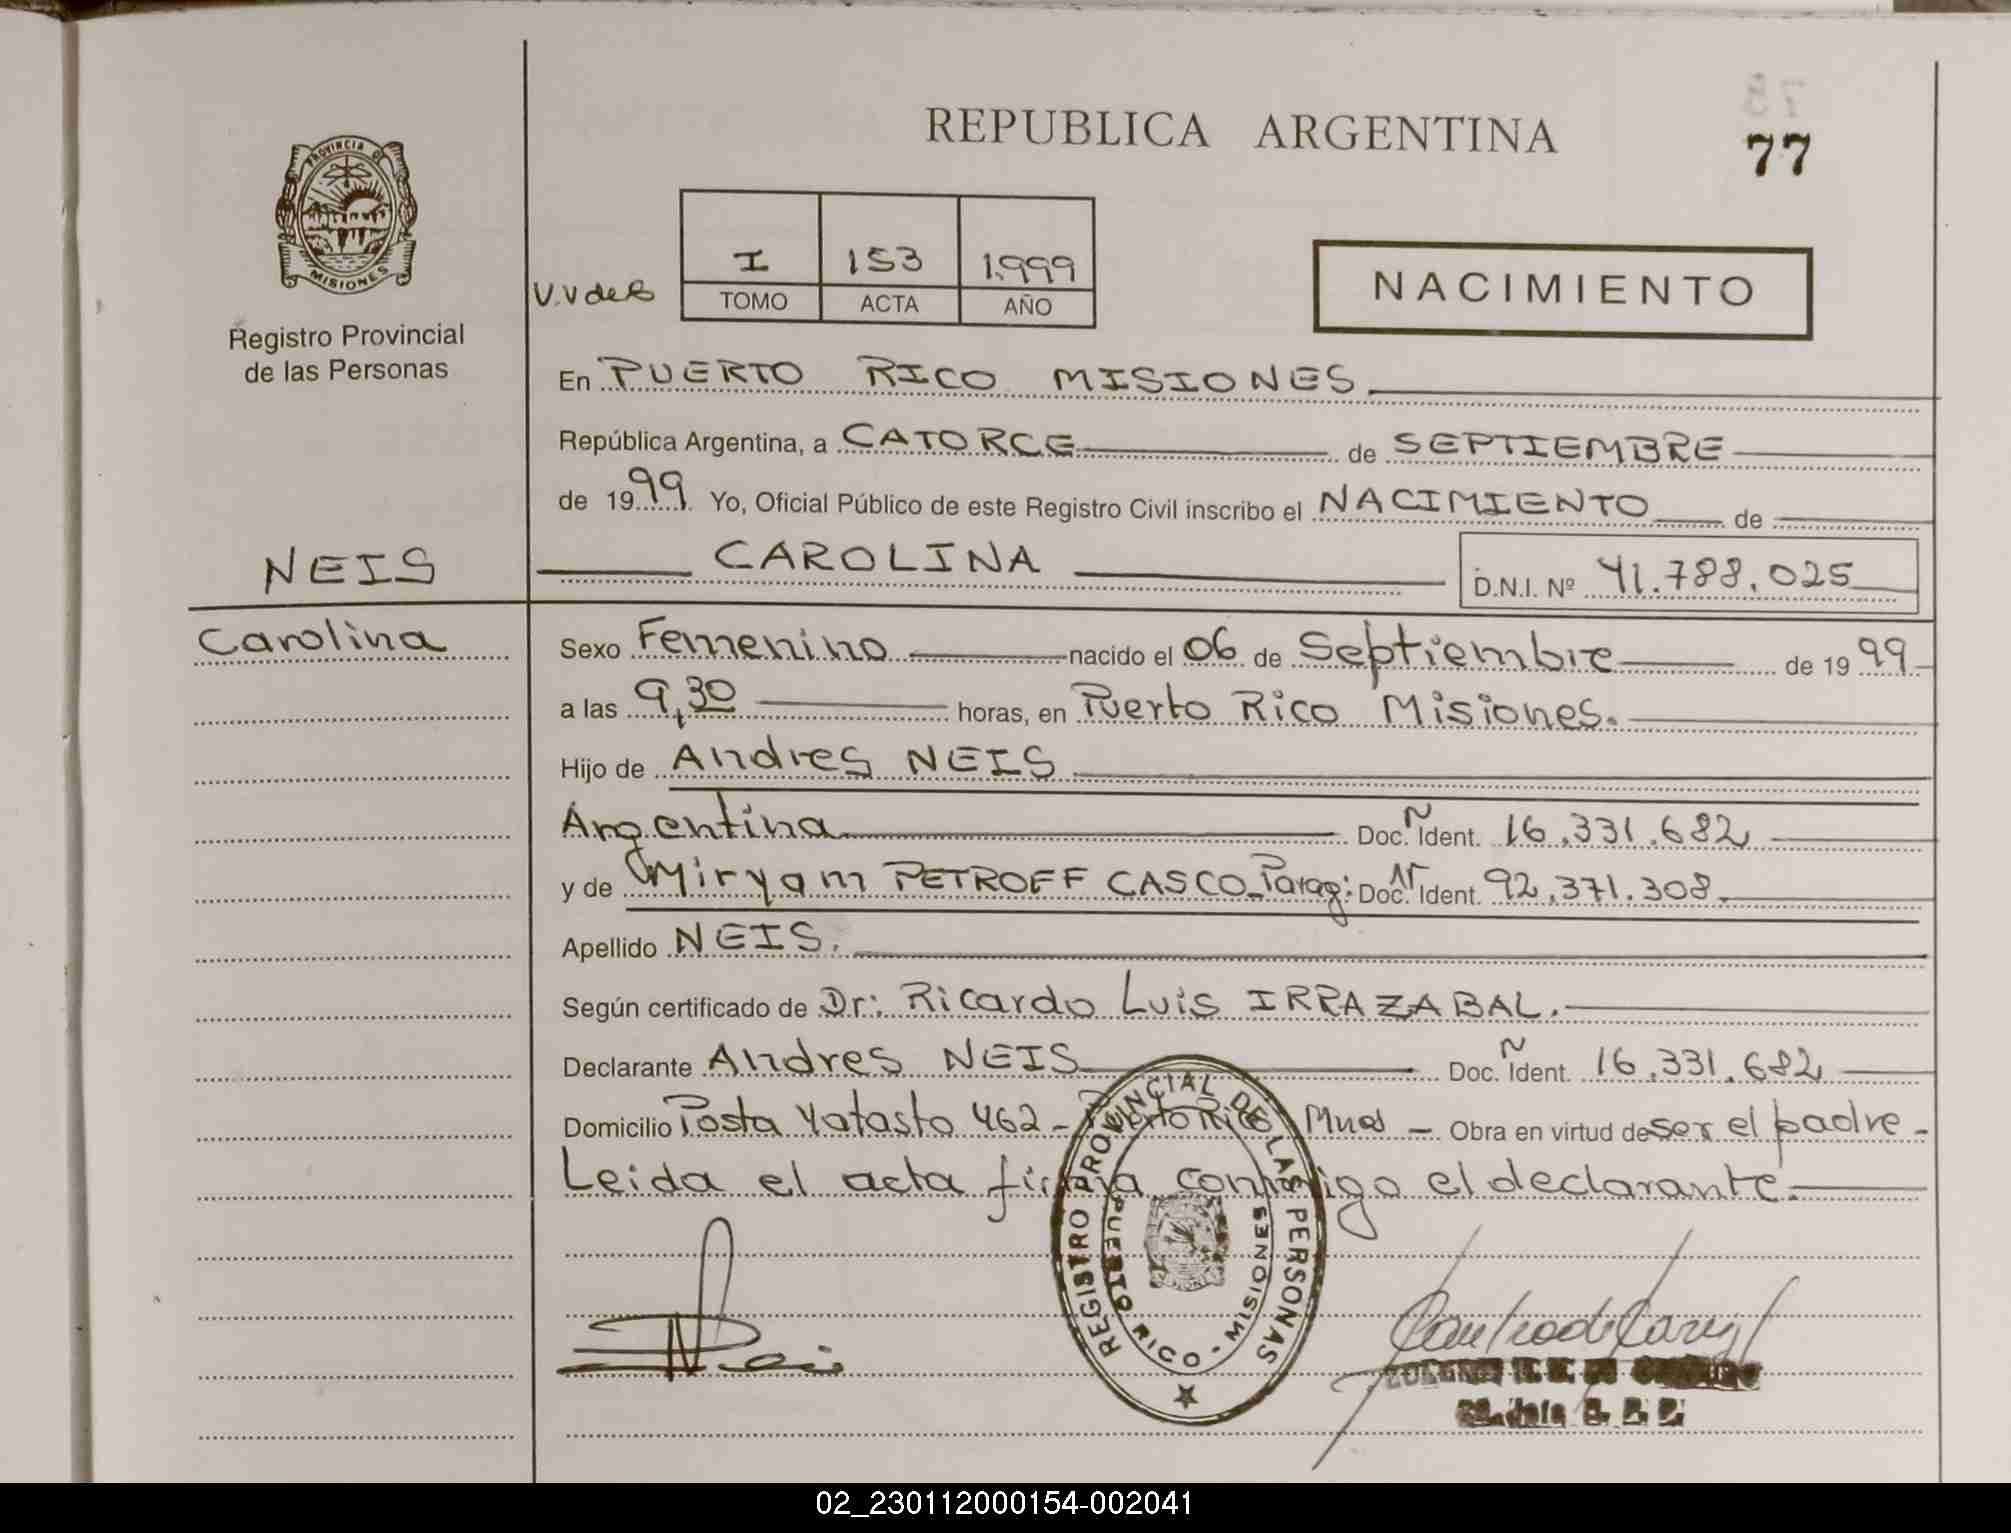 REPUBLICA ARGENTINA
77
PROVINCIA D
MISIONES
Registro Provincial
de las Personas
V.V de B
I 153 1.999
TOMO ACTA AÑO
NACIMIENTO
En PUERTO RICO MISIONES
República Argentina, a CATORCE de SEPTIEMBRE
de 1999 Yo, Oficial Público de este Registro Civil inscribo el NACIMIENTO de
NEIS CAROLINA D.N.I. Nº 41.788.025
Carolina Sexo Femenino nacido el 06 de Septiembre de 1999
a las 9,30 horas, en Puerto Rico Misiones.
Hijo de Andres NEIS
Argentina Doc. Ident. 16.331.682
y de Miryam PETROFF CASCO-Parag: Doc. Ident. 92.371.308
Apellido NEIS.
Según certificado de Dr: Ricardo Luis IRRAZABAL.
Declarante Andres NEIS Doc. Ident. 16.331.682
Domicilio Posta Yatasto 462 - Puerto Rico Mnes - Obra en virtud de ser el padre -
Leida el acta firma conmigo el declarante.
REGISTRO PROVINCIAL DE LAS PERSONAS
PUERTO RICO - MISIONES
02_230112000154-002041